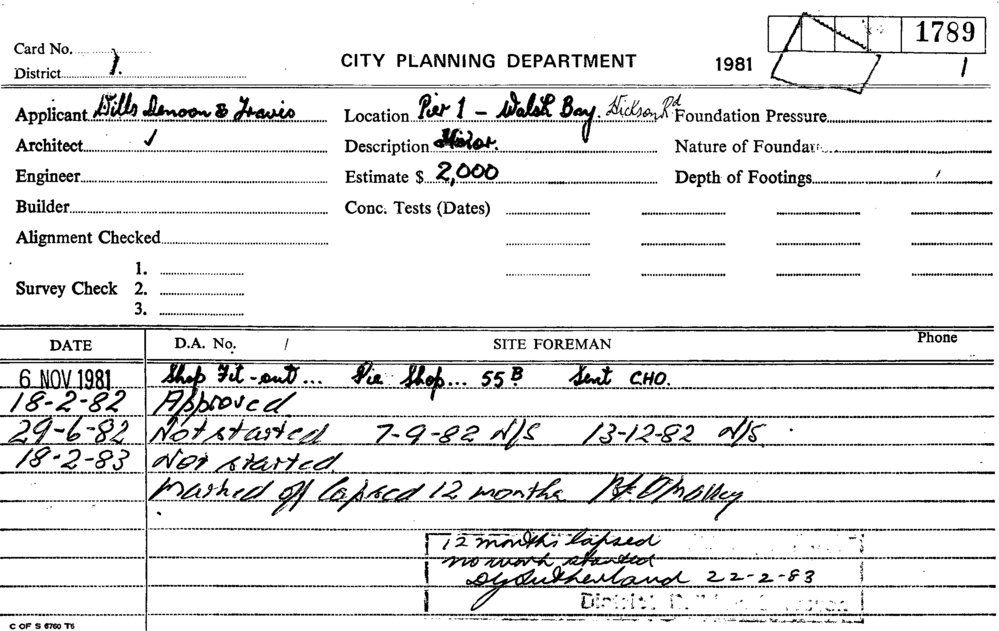 Card No. 1.
District
CITY PLANNING DEPARTMENT
1981
1789
1
Applicant Wills Denoon & Travis
Location Pier 1 - Walsh Bay. Hickson Rd
Foundation Pressure
Architect ✓
Description Minor.
Nature of Foundat
Engineer
Estimate $ 2,000
Depth of Footings
Builder
Conc. Tests (Dates)
Alignment Checked
Survey Check 1.
2.
3.
DATE D.A. No. / SITE FOREMAN Phone
6 NOV 1981 Shop Fit-out... Pie Shop... 55B Sent CHO.
18-2-82 Approved
29-6-82 Not started 7-9-82 N/S 13-12-82 N/S.
18-2-83 Not started
Marked off lapsed 12 months
12 months lapsed
no work started
Sutherland 22-2-83
District
C OF S 6760 T5